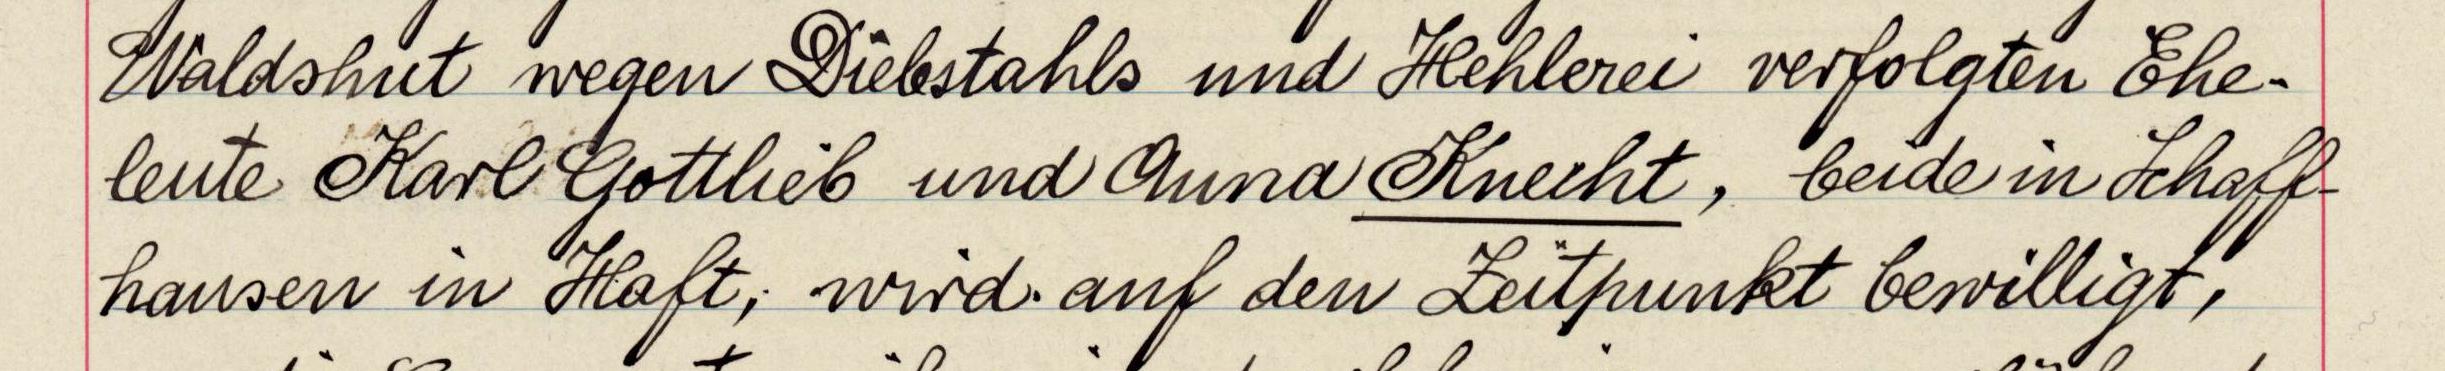 Waldshut wegen Diebstahls und Hehlerei verfolgten Ehe-
leute Karl Gottlieb und Anna Knecht, beide in Schaff-
hausen in Haft, wird auf den Zeitpunkt bewilligt,